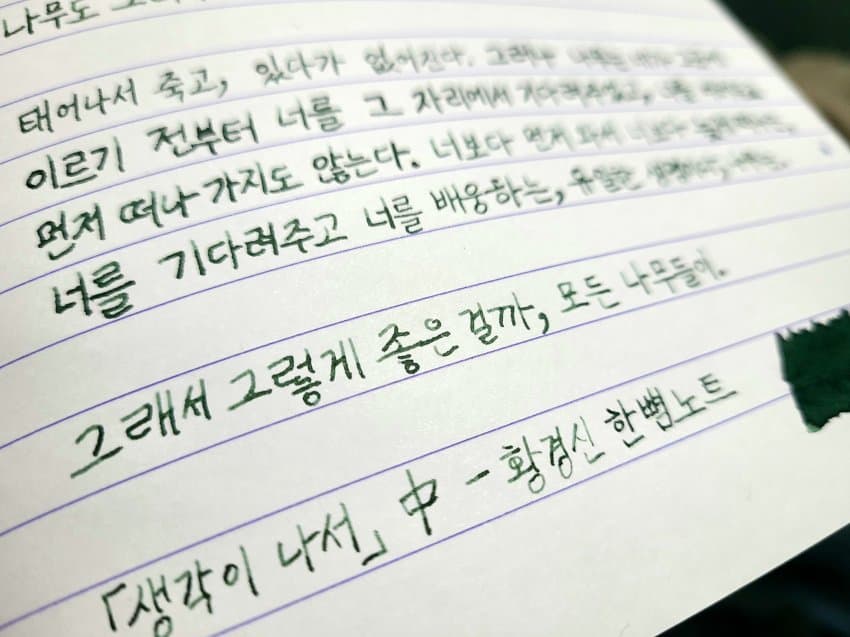 나무도
태어나서 죽고, 있다가 없어진다. 그래도 나무는
이르기 전부터 너를 그 자리에서 기다려주었고, 너를
먼저 떠나 가지도 않는다. 너보다 먼저 와서 너보다
너를 기다려주고 너를 배웅하는, 유일한
그래서 그렇게 좋은 걸까, 모든 나무들이.
「생각이 나서」 中 - 황경신 한뼘노트